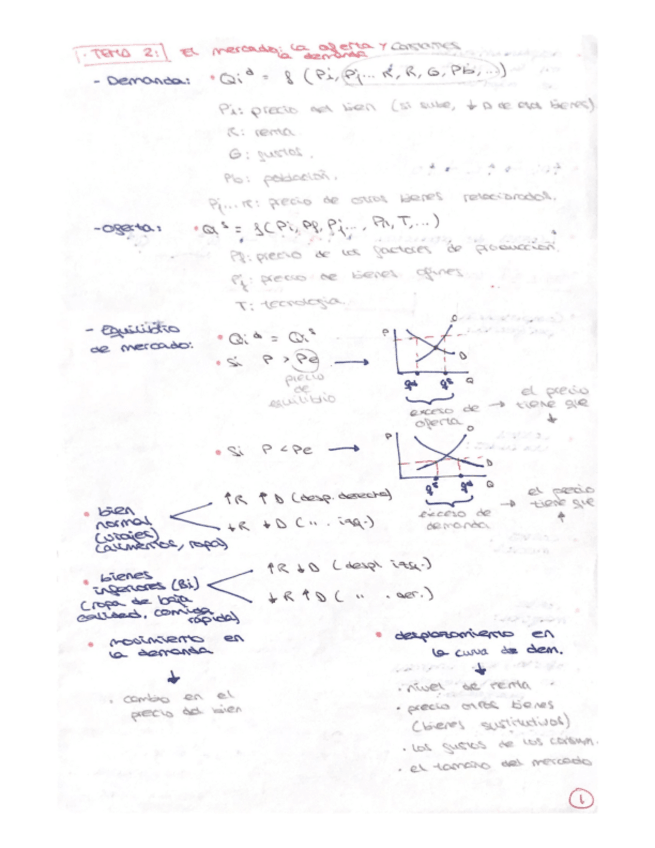 TEMA 2: El mercado: la oferta y
la demanda
- Demanda: • Qiᵈ = f (Pi, Pj... K, R, G, Pb, ...)
Pi: precio del bien (si sube, ↓ D de esos bienes)
R: renta
G: gustos.
Pb: población.
Pj...K: precio de otros bienes relacionados.
- Oferta: • Qˢ = f (Pi, Pf, Pj..., Pk, T, ...)
Pf: precio de los factores de producción.
Pj: precio de bienes afines
T: tecnología
- Equilibrio
de mercado:
• Qiᵈ = Qiˢ
• Si P > Pe →
precio
de
equilibrio
P O D Q
qᵈ qˢ
exceso de
oferta
→ el precio
tiene que
↓
• Si P < Pe →
P O D Q
qˢ qᵈ
exceso de
demanda
→ el precio
tiene que
↑
• bien
normal
(viajes)
(alimentos, ropa)
↑R ↑D (desp. derecha)
↓R ↓D (" . izq.)
• bienes
inferiores (Bi)
(ropa de baja
calidad, comida
rápida)
↑R ↓D (despl izq.)
↓R ↑D ( " . der.)
• movimiento en
la demanda
↓
· cambio en el
precio del bien
• desplazamiento en
la curva de dem.
↓
· nivel de renta
· precio otros bienes
(bienes sustitutivos)
· los gustos de los consum.
· el tamaño del mercado
1